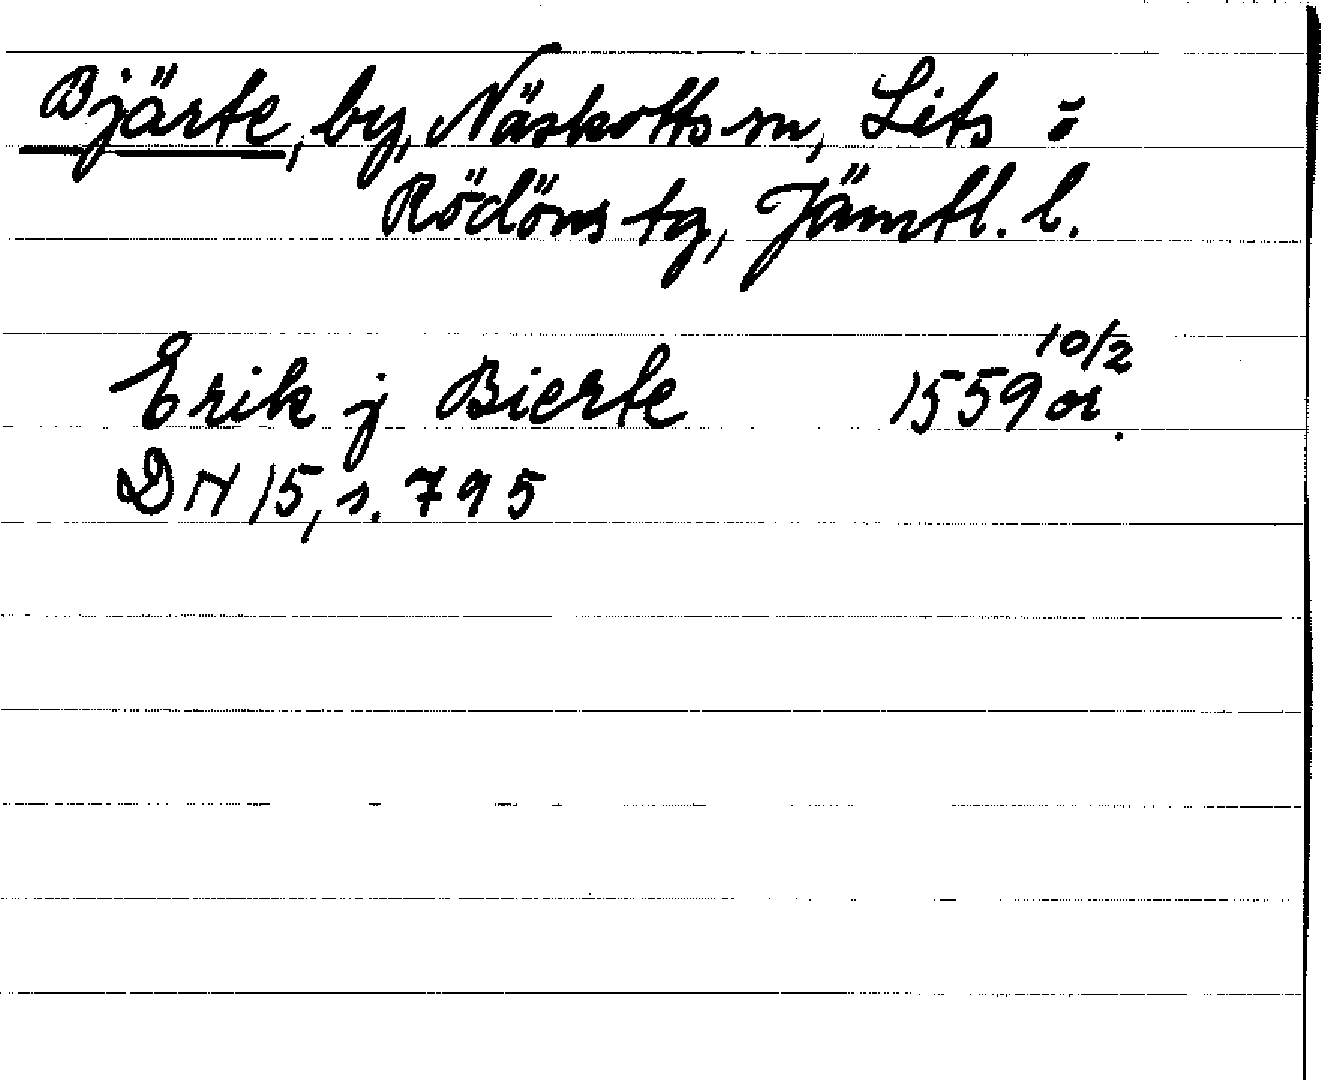 Bjärte, by, Näskotts sn, Lits o
Rödöns tg, Jämtl. l.
Erik j Bierte 1559 10/2 or.
DN 15, s. 795